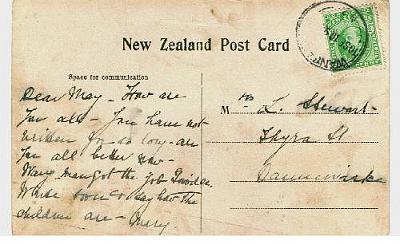 New Zealand Post Card
Space for communication
Dear May - How are
you all - You have not
written for so long - are
you all better now -
man got the job
Write soon & say how the
children are - Mary
Mrs L. Stewart
Thyra St
Dannevirke